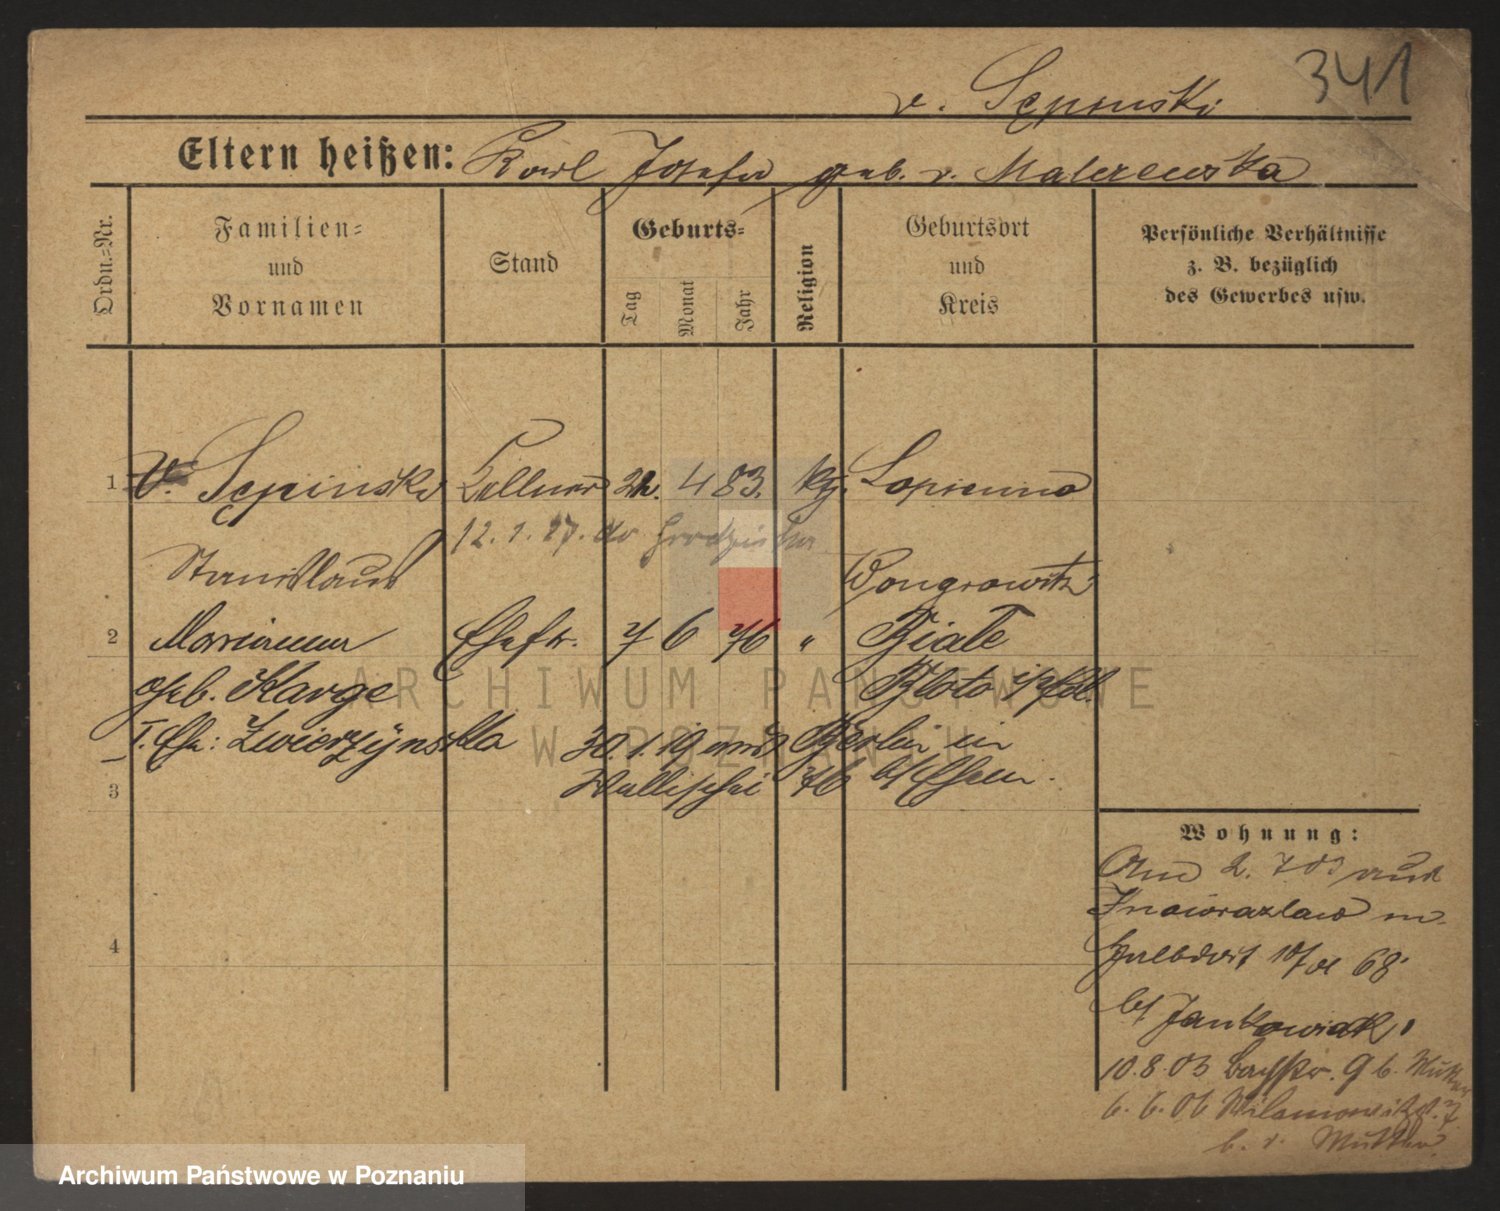 341
v. Sępinski
Eltern heißen: Karl Josefa geb. v. Malczewska
Ordn.=Nr.
Familien=
und
Vornamen
Stand
Geburts=
Tag
Monat
Jahr
Religion
Geburtsort
und
Kreis
Persönliche Verhältnisse
z. B. bezüglich
des Gewerbes usw.
1 v. Sępinski Kellner 4 83. Kth. Lopienno
12. 1. 27. do Grodziska
Stanislaus Wongrowitz
2 Marianna Ehefr. 7 6 76 " Biale
geb. Karge Bloto
I. Ehe: Zwierzynska 30.1.19 Berlin in
3 Wallischei 76 bei
4
Wohnung:
Am 2. 7 03 aus
Inowrazlaw in
68
bei Jankowiak.
10.8.03 9 b. Mutter
6. 6. 06 7
b. d. Mutter
ARCHIWUM PAŃSTWOWE
W POZNANIU
Archiwum Państwowe w Poznaniu